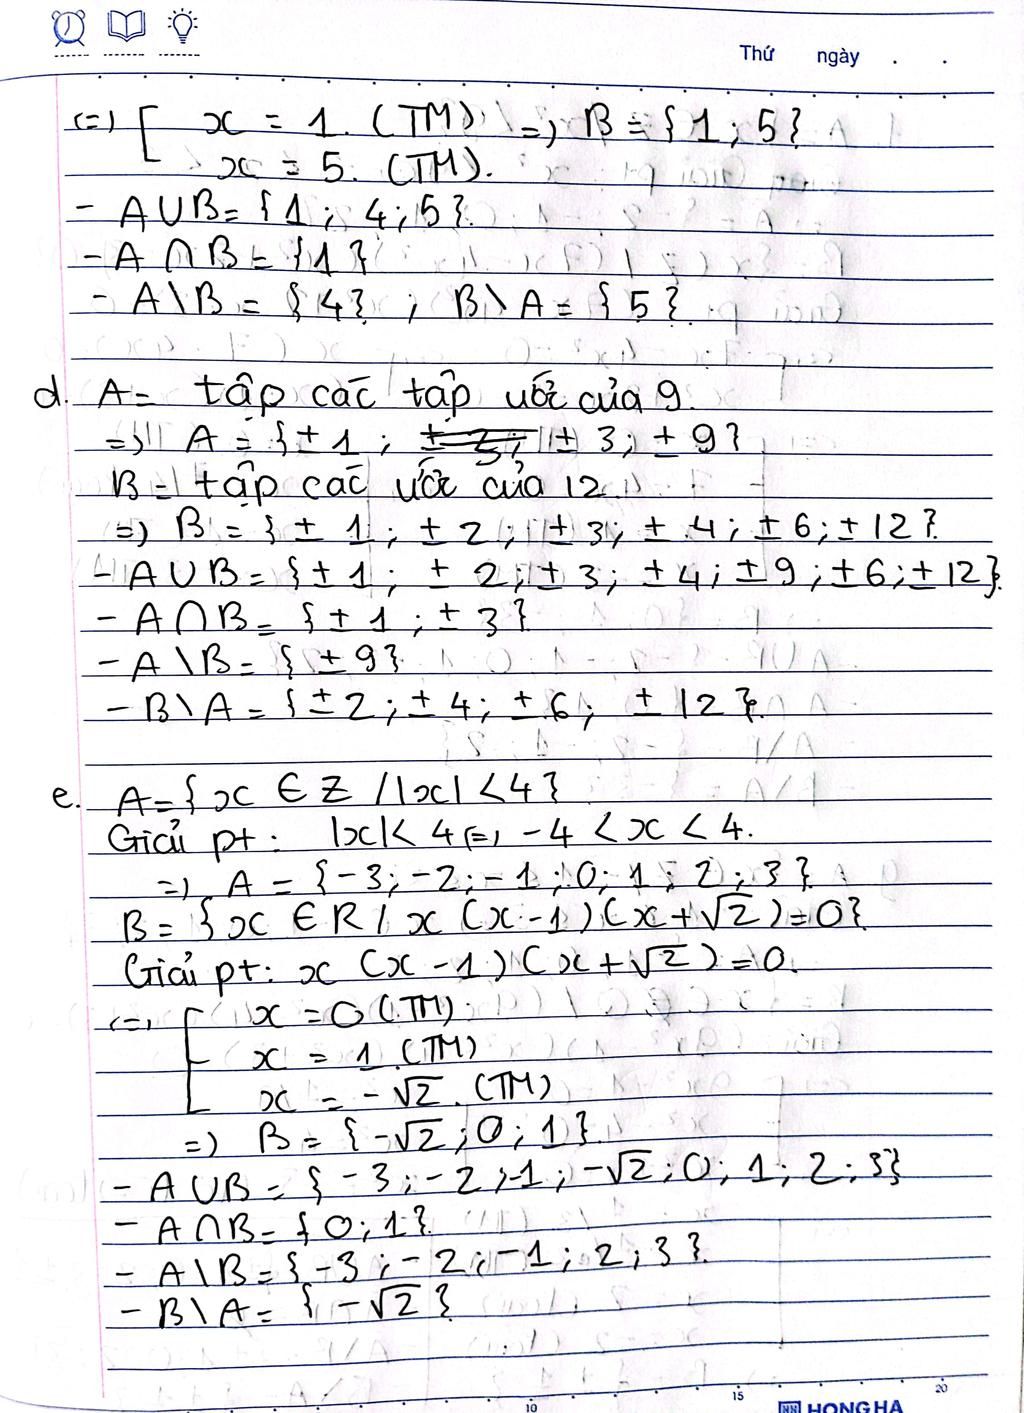 Thứ ngày . .
<=> [ x = 1. (TM) => B = {1; 5}
x = 5. (TM).
- A∪B = {1; 4; 5}.
- A ∩ B = {1}
- A \ B = {4} ; B \ A = {5}.
d. A = tập các tập ước của 9.
=> A = {±1; ±3; ±9}
B = tập các ước của 12.
=> B = {±1; ±2; ±3; ±4; ±6; ±12}.
- A∪B = {±1; ±2; ±3; ±4; ±9; ±6; ±12}.
- A∩B = {±1; ±3}
- A \ B = {±9}
- B \ A = {±2; ±4; ±6; ±12}.
e. A = {x ∈ Z / |x| < 4}
Giải pt: |x| < 4 <=> -4 < x < 4.
=> A = {-3; -2; -1; 0; 1; 2; 3}
B = {x ∈ R / x (x-1) (x+√2) = 0}
Giải pt: x (x-1) (x+√2) = 0.
<=> [ x = 0 (TM)
x = 1 (TM)
x = -√2. (TM)
=> B = {-√2; 0; 1}.
- A∪B = {-3; -2; -1; -√2; 0; 1; 2; 3}
- A∩B = {0; 1}.
- A \ B = {-3; -2; -1; 2; 3}.
- B \ A = {-√2}
10 15 20
HONG HA